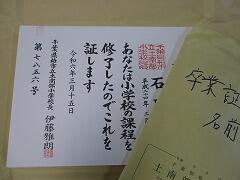 石
平成二十四年三
あなたは小学校の課程を
修了したのでこれを
証します
令和六年三月十五日
千葉県柏市立土南部小学校長 伊藤雅朗
第七八五六号
卒業証
名前
土南部